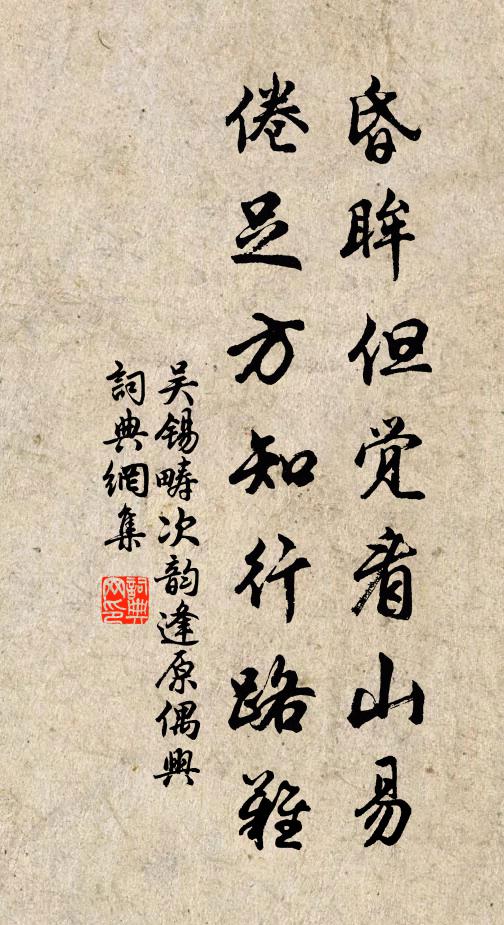 昏眸但觉看山易
倦足方知行路难
吴锡畴次韵逢原偶興
詞典網集
詞典网印